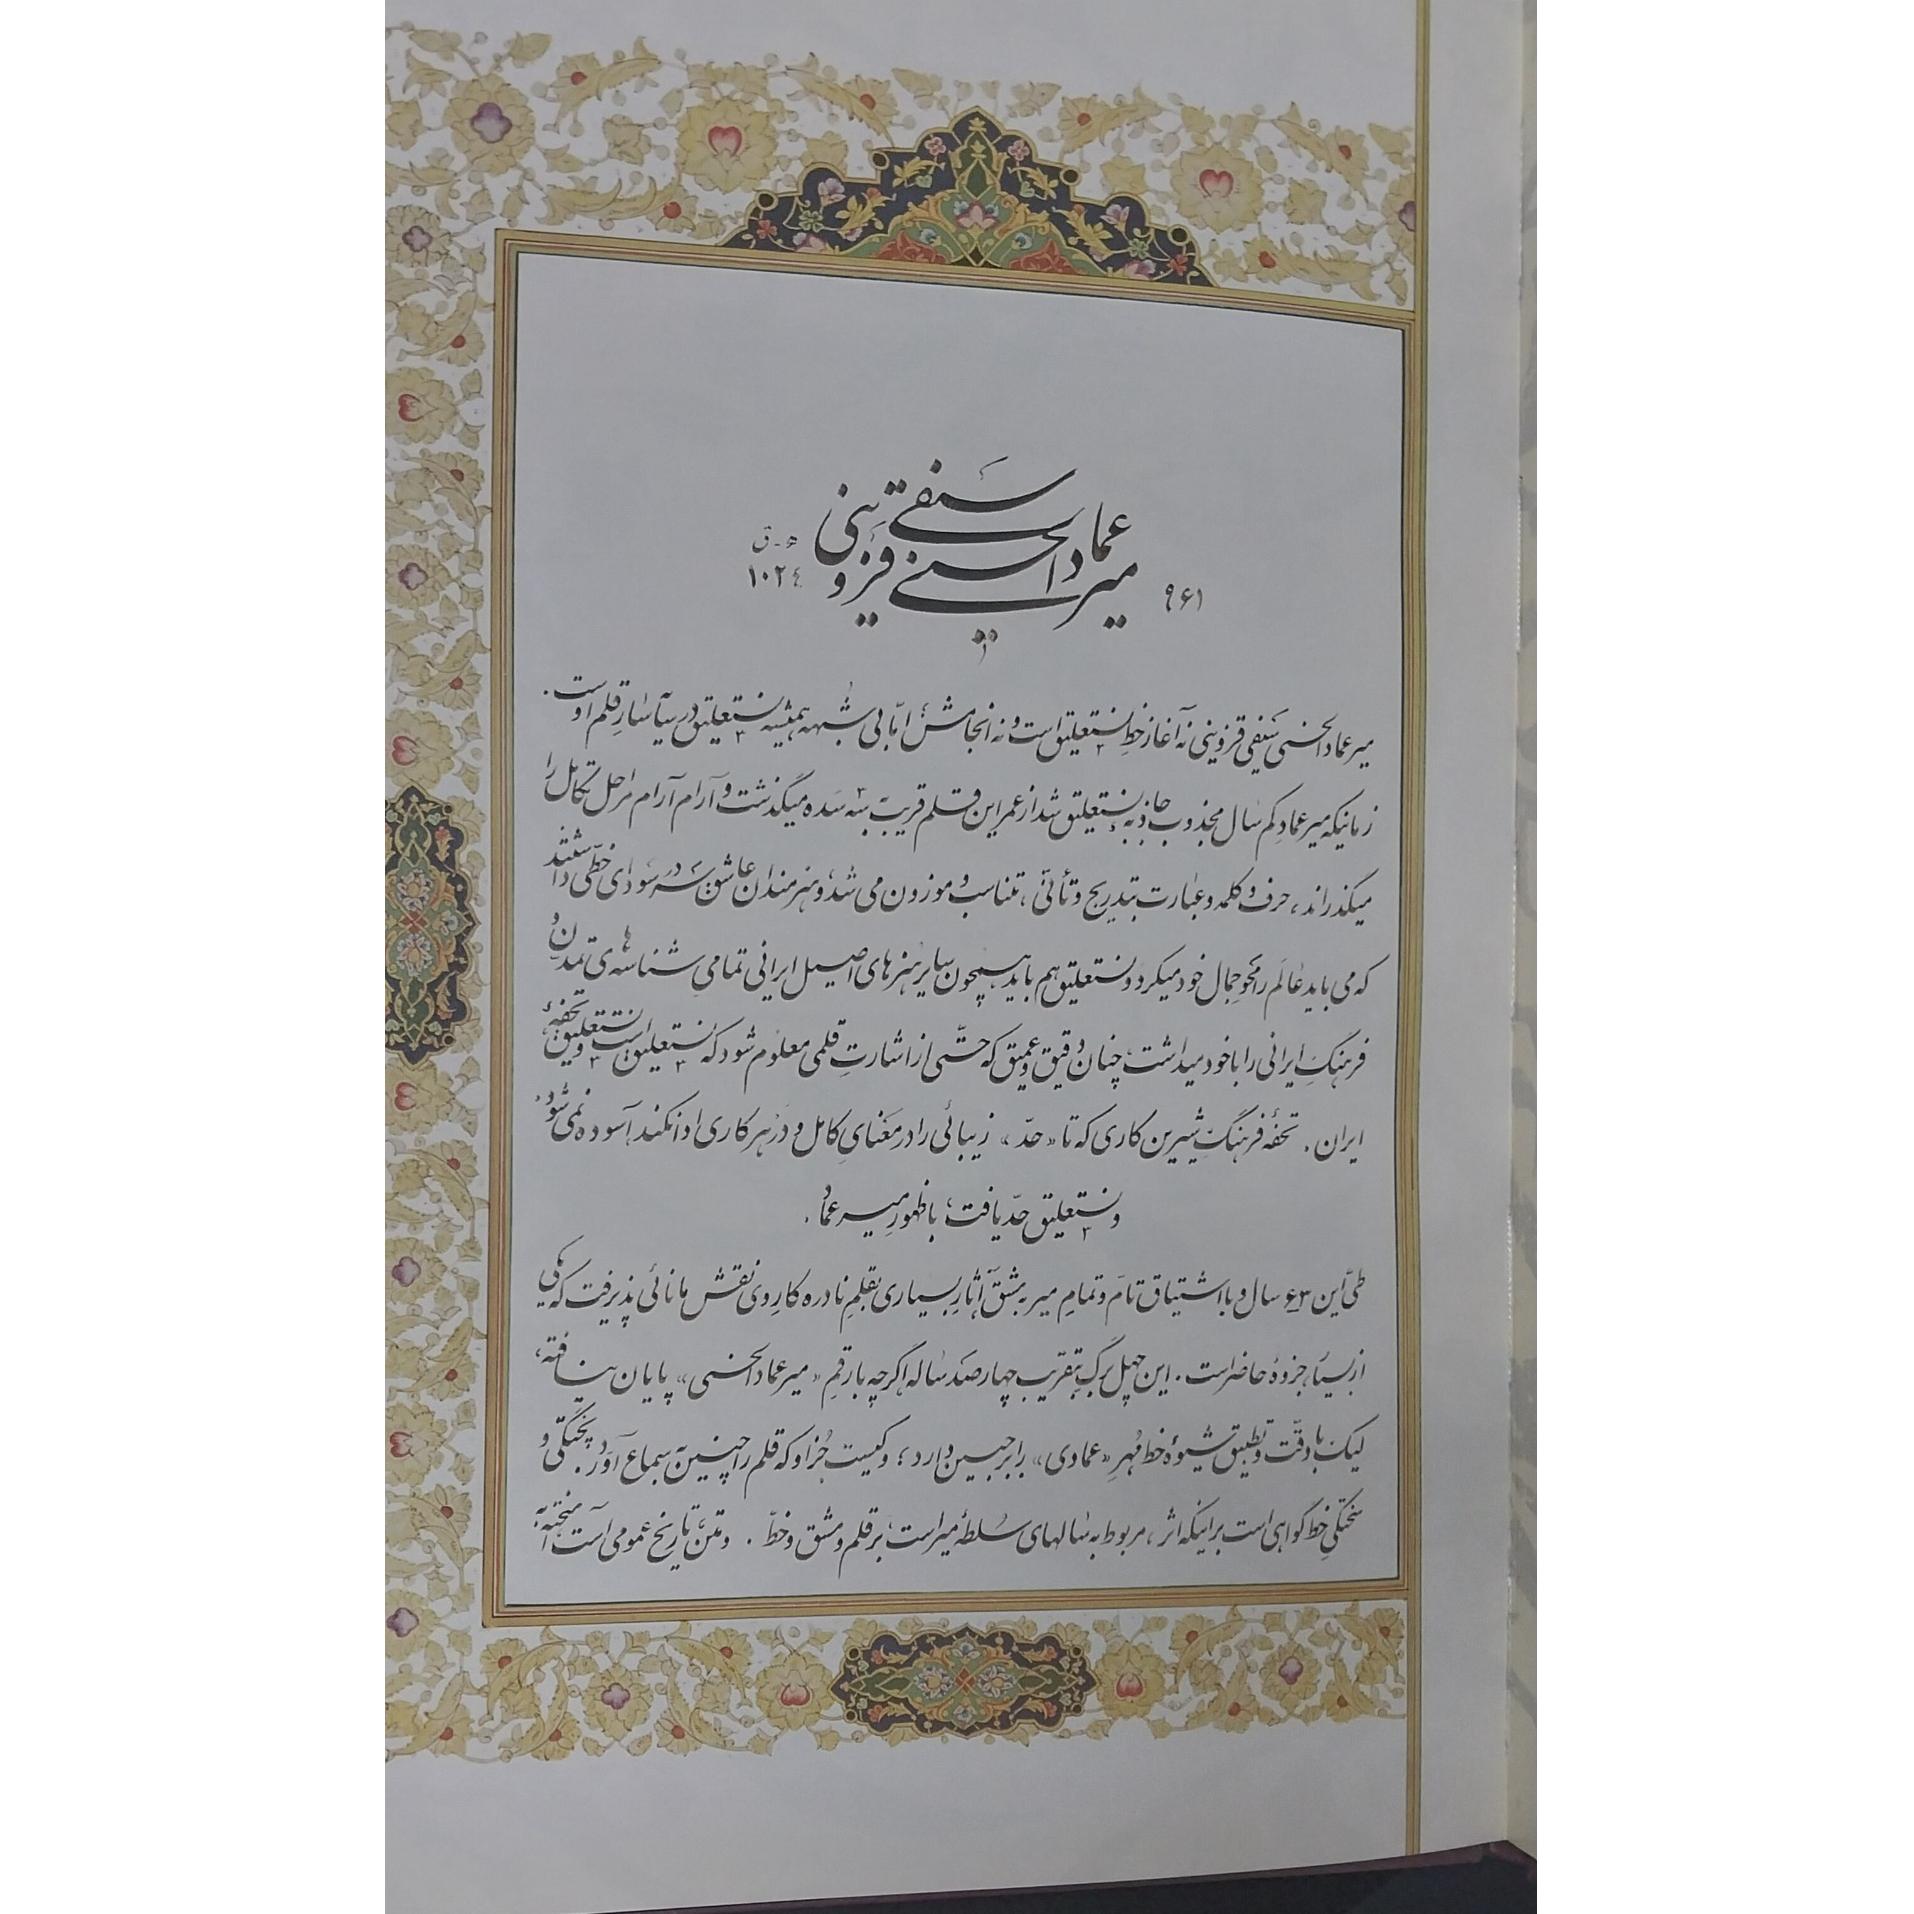 میر عماد الحسنی سیفی قزوینی
۹۶۱
ه‍ .ق
۱۰۲۴
میر عماد الحسنی سیفی قزوینی نه آغاز خطِ نستعلیق است و نه انجامش؛ امّا بی شبهه همیشه نستعلیق در سایه‌سارِ قلم اوست.
زمانیکه میر عماد کم سال مجذوب جاذبهٔ نستعلیق شد از عمر این قلم قریب سه سده میگذشت و آرام آرام مراحل تکامل را
میگذراند، حرف و کلمه و عبارت بتدریج و تأنّی، تناسب و موزون می شد، و هنرمندان عاشق سر در سودای خطّی داشتند
که می باید عالَم را محوِ جمال خود میکرد و نستعلیق هم باید همچون سایر هنرهای اصیل ایرانی تمامیِ شناسه‌های تمدن و
فرهنگِ ایرانی را با خود میداشت؛ چنان دقیق و عمیق که حتّی از اشارتِ قلمی معلوم شود که نستعلیق است و نستعلیق تحفهٔ
ایران. تحفهٔ فرهنگِ شیرین کاری که تا «حدّ» زیبائی را در معنایِ کامل و در هر کاری ادا نکند، آسوده نمی شود،
و نستعلیق حدّ یافت؛ با ظهورِ میر عماد.
طیّ این ۶۳ سال و با اشتیاق تامّ و تمامِ میر به مشق، آثارِ بسیاری بقلمِ نادره کارِ وی نقش مانائی پذیرفت که یکی
از بسیار، جزوهٔ حاضر است. این چهل برگِ بتقریب چهارصد ساله اگر چه با رقمِ «میر عماد الحسنی» پایان نیافته،
لیک با دقّت و تطبیق شیوهٔ خط مُهرِ «عمادی» را بر جبین دارد؛ و کیست جُز او که قلم را چنین به سماع آوَرد. پختگی و
سَختگیِ خط گواهی است بر اینکه اثر، مربوط به سالهای سلطهٔ میر است، بر قلم و مشق و خطّ. و متن، تاریخ عمومی است